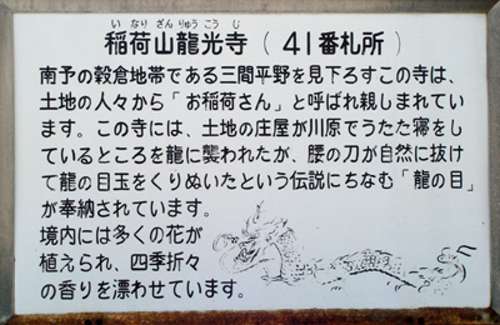 いなりざんりゅうこうじ
稲荷山龍光寺(41番札所)
南予の穀倉地帯である三間平野を見下ろすこの寺は、
土地の人々から「お稲荷さん」と呼ばれ親しまれてい
ます。この寺には、土地の庄屋が川原でうたた寝をし
ているところを龍に襲われたが、腰の刀が自然に抜け
て龍の目玉をくりぬいたという伝説にちなむ「龍の目」
が奉納されています。
境内には多くの花が
植えられ、四季折々
の香りを漂わせています。